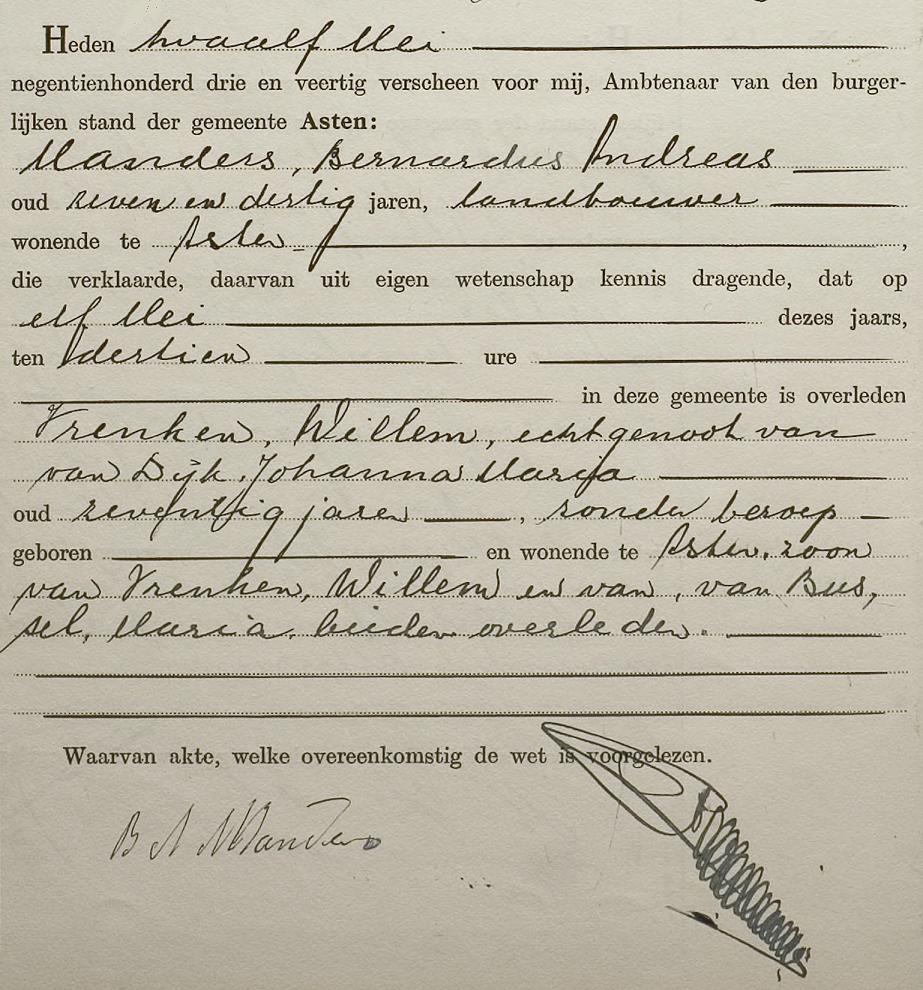 Heden twaalf Mei
negentienhonderd drie en veertig verscheen voor mij, Ambtenaar van den burger-
lijken stand der gemeente Asten:
Manders, Bernardus Andreas
oud zeven en dertig jaren, landbouwer
wonende te Asten,
die verklaarde, daarvan uit eigen wetenschap kennis dragende, dat op
elf Mei dezes jaars,
ten dertien ure
in deze gemeente is overleden
Vrenken, Willem, echtgenoot van
van Dijk, Johanna Maria
oud zeventig jaren, zonder beroep
geboren en wonende te Asten, zoon
van Vrenken, Willem en van, van Bus,
sel, Maria, beiden overleden.
Waarvan akte, welke overeenkomstig de wet is voorgelezen.
B A Manders